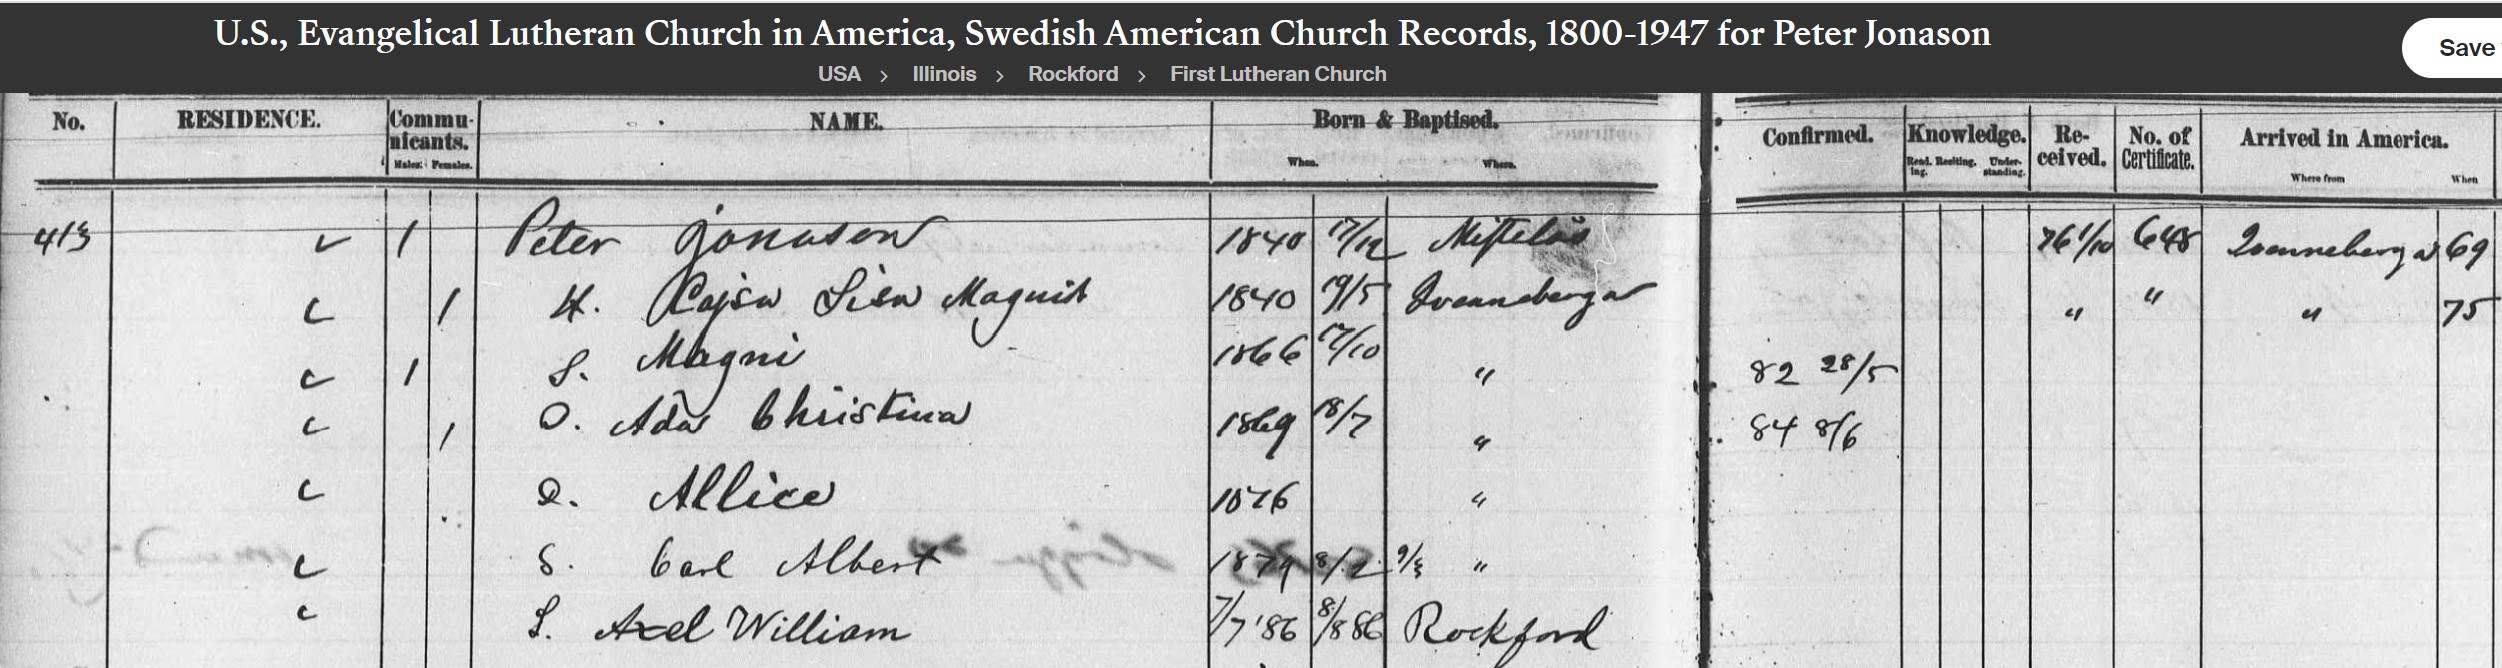 U.S., Evangelical Lutheran Church in America, Swedish American Church Records, 1800-1947 for Peter Jonason
Save
USA > Illinois > Rockford > First Lutheran Church
No. RESIDENCE. Commu-nicants. Males. Females. NAME. Born & Baptised. When. Where. Confirmed. Knowledge. Read-ing. Reciting. Under-standing. Re-ceived. No. of Certificate. Arrived in America. Where from When
413 1 Peter Jonason 1840 17/12 Mistelås 76 1/10 648 69
1 H. Cajsa Lisa Maguist 1840 19/5 " " " 75
1 S. Magni 1866 12/10 " 82 28/5
1 D. Ada Christina 1869 18/7 " 84 8/6
D. Allice 1876 "
S. Carl Albert 1879 8/2 9/3 "
S. Axel William 7/7 '86 8/8 86 Rockford